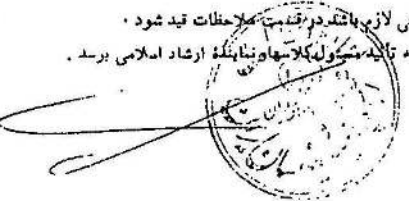 ی لازم باشد در قسمت ملاحظات قید شود .
ه تأئید مسئول کلاسها و نمایندهٔ ارشاد اسلامی برسد .